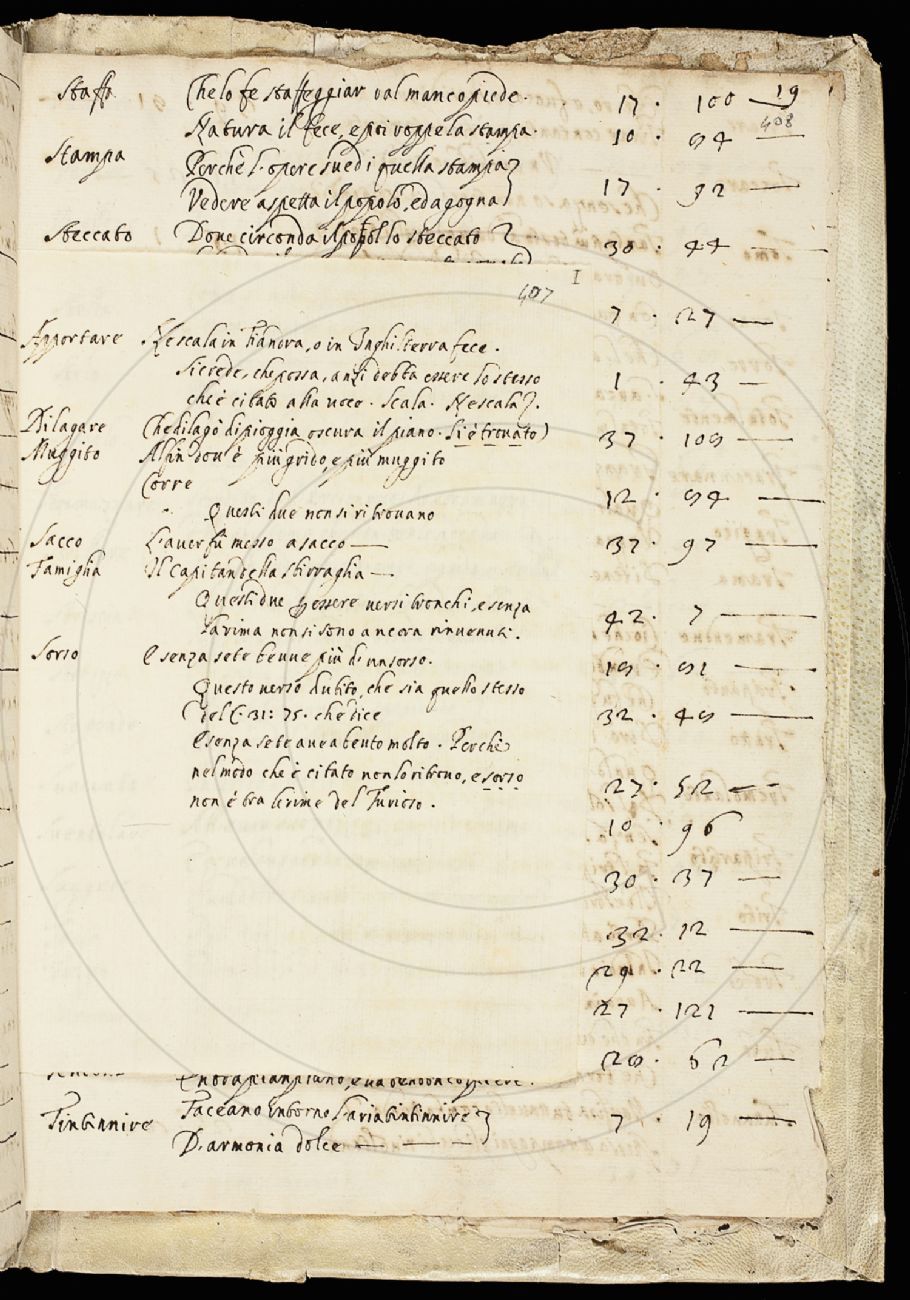 19
408
Staffa Che lo fe staffeggiar dal manco piede. 17 · 100
Natura il fece, e poi roppe la stampa. 10 · 84
Stampa Perchè l'opere sue di quella stampa}
Vedere aspetta il popolo, ed agogna} 17 · 92
Steccato Doue circonda il popol lo steccato } 30 · 44
407 I
7 · 27
Apportare Ne scala in Fiandra, o in Inghilterra fece.
Si crede, che possa, anzi debba essere lo stesso 1 · 43
che è citato alla uoce. Scala. Ne scala}.
Dilagare Che dilagò di pioggia oscura il piano. Si è trouato) 37 · 108
Muggito Alfin dou' è più grido, e più muggito
Corre 12 · 94
Questi due non si ritrouano
Sacco L'auer fù messo a sacco — 37 · 97
Famiglia Il Capitan della sbirraglia —
Questi due p essere uersi tronchi, e senza 42 · 7
la rima non si sono ancora rinuenuti.
Sorso E senza sete beuue più d'un sorso. 18 · 91
Questo uerso dubito, che sia quello stesso
del C. 31: 75. che dice 32 · 48
E senza sete auea beuto molto. Perchè
nel modo che è citato non lo ritrouo, e sorso 27 · 52
non è tra le rime del Furioso.
10 · 96
30 · 37
32 · 12
29 · 22
27 · 121
28 · 62
Tintinnire Faceano intorno l'aria tintinnire } 7 · 19
D'armonia dolce — — —